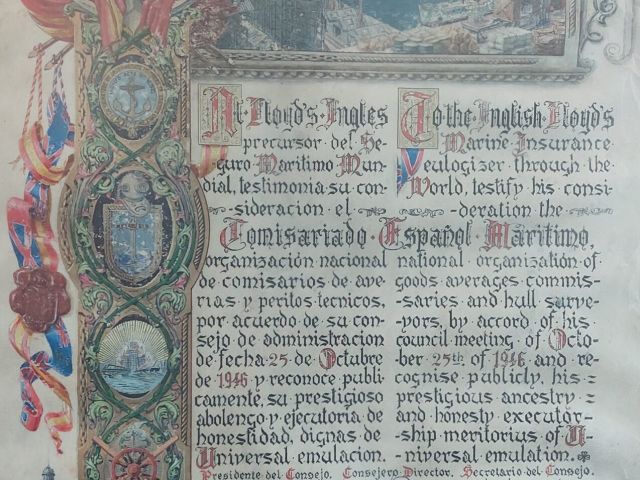 Al Lloyd's Ingles
precursor del Se-
guro Maritimo Mun-
dial, testimonia su con-
-sideracion el
To the Inglish Lloyd's
Marine Insurance
Veulogizer through the
World, testify his consi-
-deration the
Comisariado Español Maritimo,
organización nacional
de comisarios de ave-
rias y peritos tecnicos,
por acuerdo de su con-
sejo de administracion
de fecha 25 de Octubre
de 1946 y reconoce publi-
camente, su prestigioso
abolengo y ejecutoria de
honestidad, dignas de
Universal emulacion.
national organization of
goods averages commis-
-saries and hull surve-
-yors, by accord of his
council meeting of Octo-
ber 25th of 1946 and re-
cognise publicly, his
prestigious ancestry
and honesty executor-
-ship meritorius of U-
-niversal emulation.
Presidente del Consejo. Consejero Director. Secretario del Consejo.